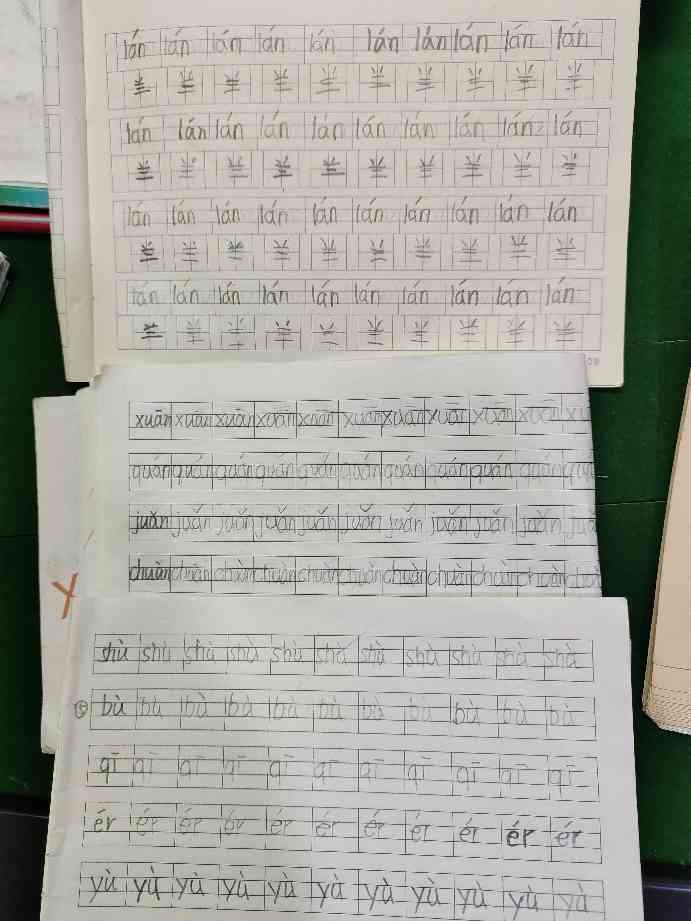 lán lán lán lán lán lán lán lán lán lán
兰 兰 兰 兰 兰 兰 兰 兰 兰 兰
lán lán lán lán lán lán lán lán lán lán
兰 兰 兰 兰 兰 兰 兰 兰 兰 兰
lán lán lán lán lán lán lán lán lán lán
兰 兰 兰 兰 兰 兰 兰 兰 兰 兰
lán lán lán lán lán lán lán lán lán lán
兰 兰 兰 兰 兰 兰 兰 兰 兰 兰
xuān xuān xuān xuān xuān xuān xuān xuān xuān xuān xu
quán quán quán quán quán quán quán quán quán quán quá
juǎn juǎn juǎn juǎn juǎn juǎn juǎn juǎn juǎn juǎn juǎ
chuàn chuàn chuàn chuàn chuàn chuàn chuàn chuàn chuàn chuàn chuà
shù shù shù shù shù shù shù shù shù shù shù
bù bù bù bù bù bù bù bù bù bù bù
qī qī qī qī qī qī qī qī qī qī qī
ér ér ér ér ér ér ér ér ér ér ér
yù yù yù yù yù yù yù yù yù yù yù